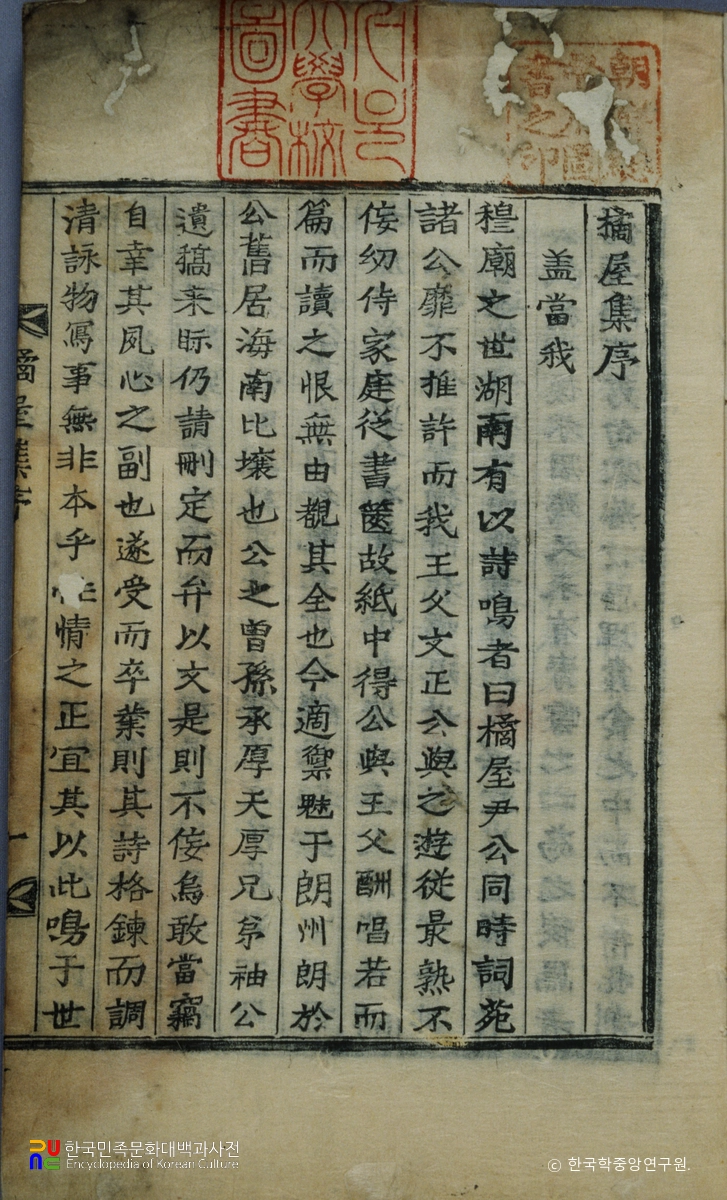 橘屋集序
盖當我
穆廟之世湖南有以詩鳴者曰橘屋尹公同時詞苑
諸公靡不推許而我王父文正公與之遊從最熟不
侫幼侍家庭從書篋故紙中得公與王父酬唱若而
篇而讀之恨無由覩其全也今適禦魅于朗州朗於
公舊居海南比壤也公之曾孫承厚天厚兄弟袖公
遺稿来眎仍請刪定而弁以文是則不侫烏敢當竊
自幸其夙心之副也遂受而卒業則其詩格鍊而調
清詠物寫事無非本乎性情之正宜其以此鳴于世
橘屋集序
一
大學校
圖書
朝
書之印
한국민족문화대백과사전
Encyclopedia of Korean Culture
© 한국학중앙연구원.